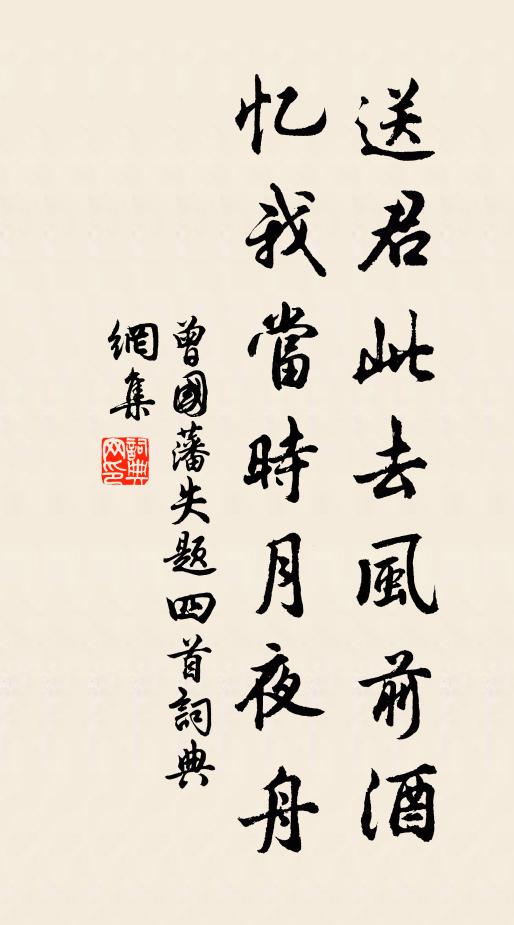 送君此去風前酒
忆我當時月夜舟
曾國藩失题四首詞典
網集
詞典網印